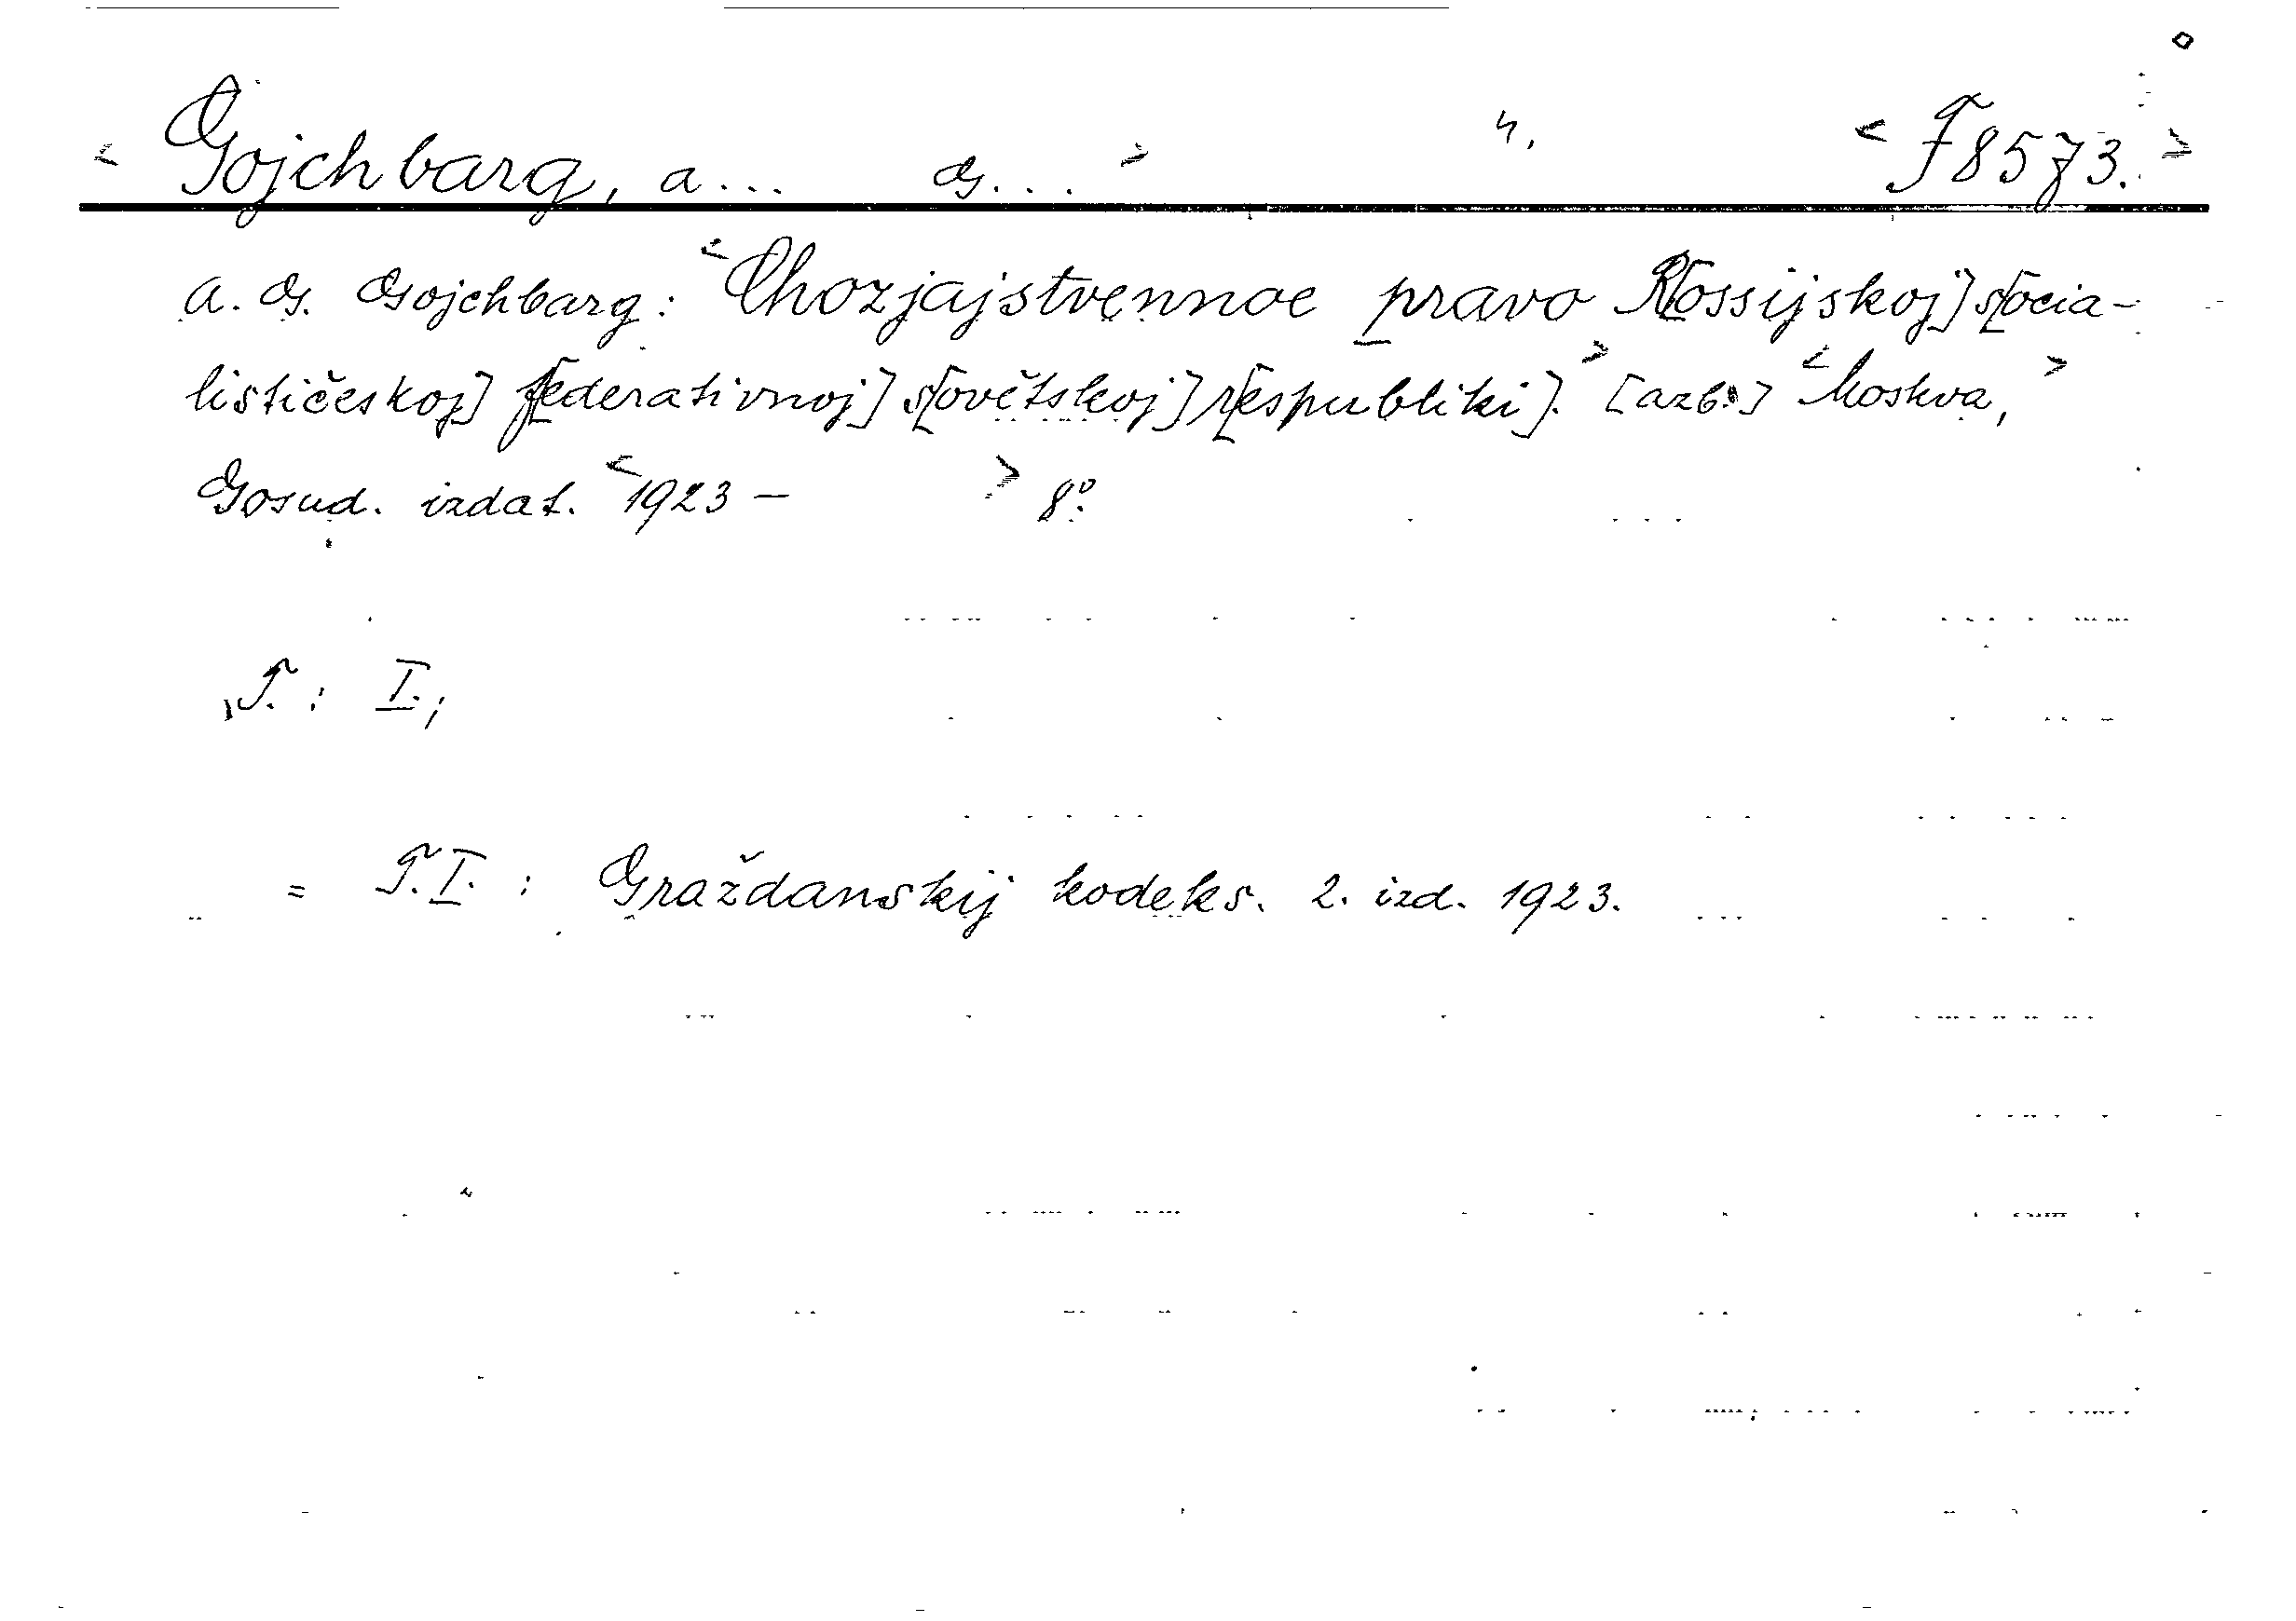 < Gojchbarg, A... G... > 4, < F 8573. >
A. G. Gojchbarg: <Chozjajstvennoe pravo R[ossijskoj] s[ocia-
lističeskoj] f[ederativnoj] s[ovětskoj] r[espubliki].> [azb.] <Moskva,>
Gosud. izdat. <1923 – > 8°.
T. : I.,
= T. I. : Graždanskij kodeks. 2. izd. 1923.